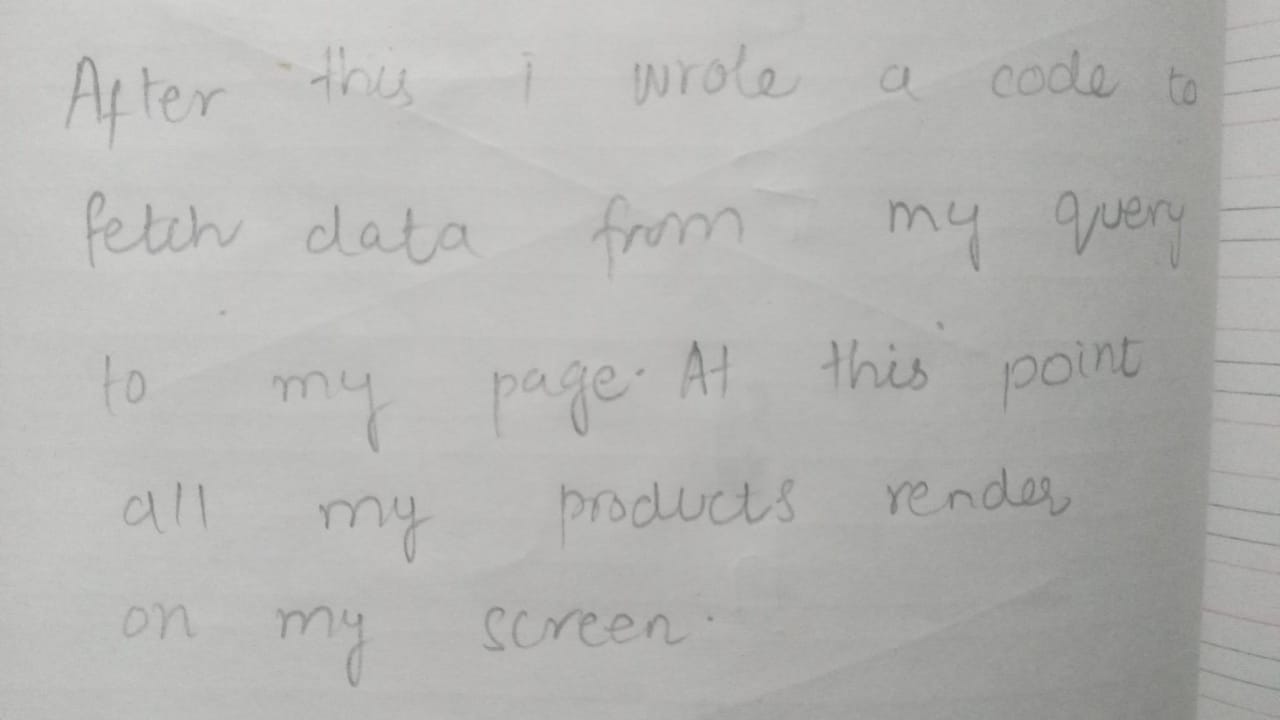 After this i wrote a code to
fetch data from my query
to my page. At this point
all my products render
on my screen.